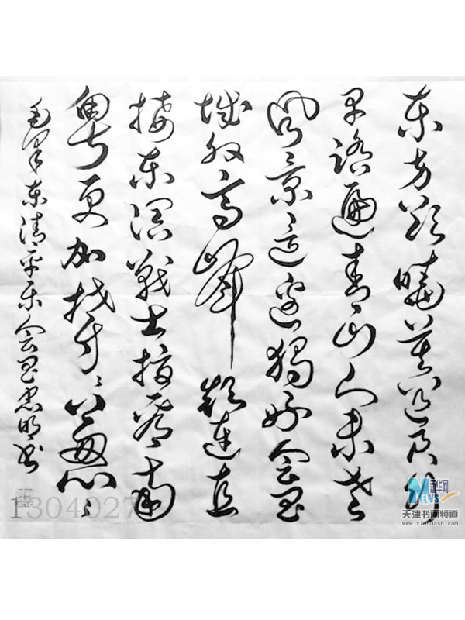 东方欲晓莫道君行
早踏遍青山人未老
风景这边独好会昌
城外高峰颠连直
接东溟战士指看南
粤更加郁郁葱葱
毛泽东清平乐会昌
NEWS
天津书画频道